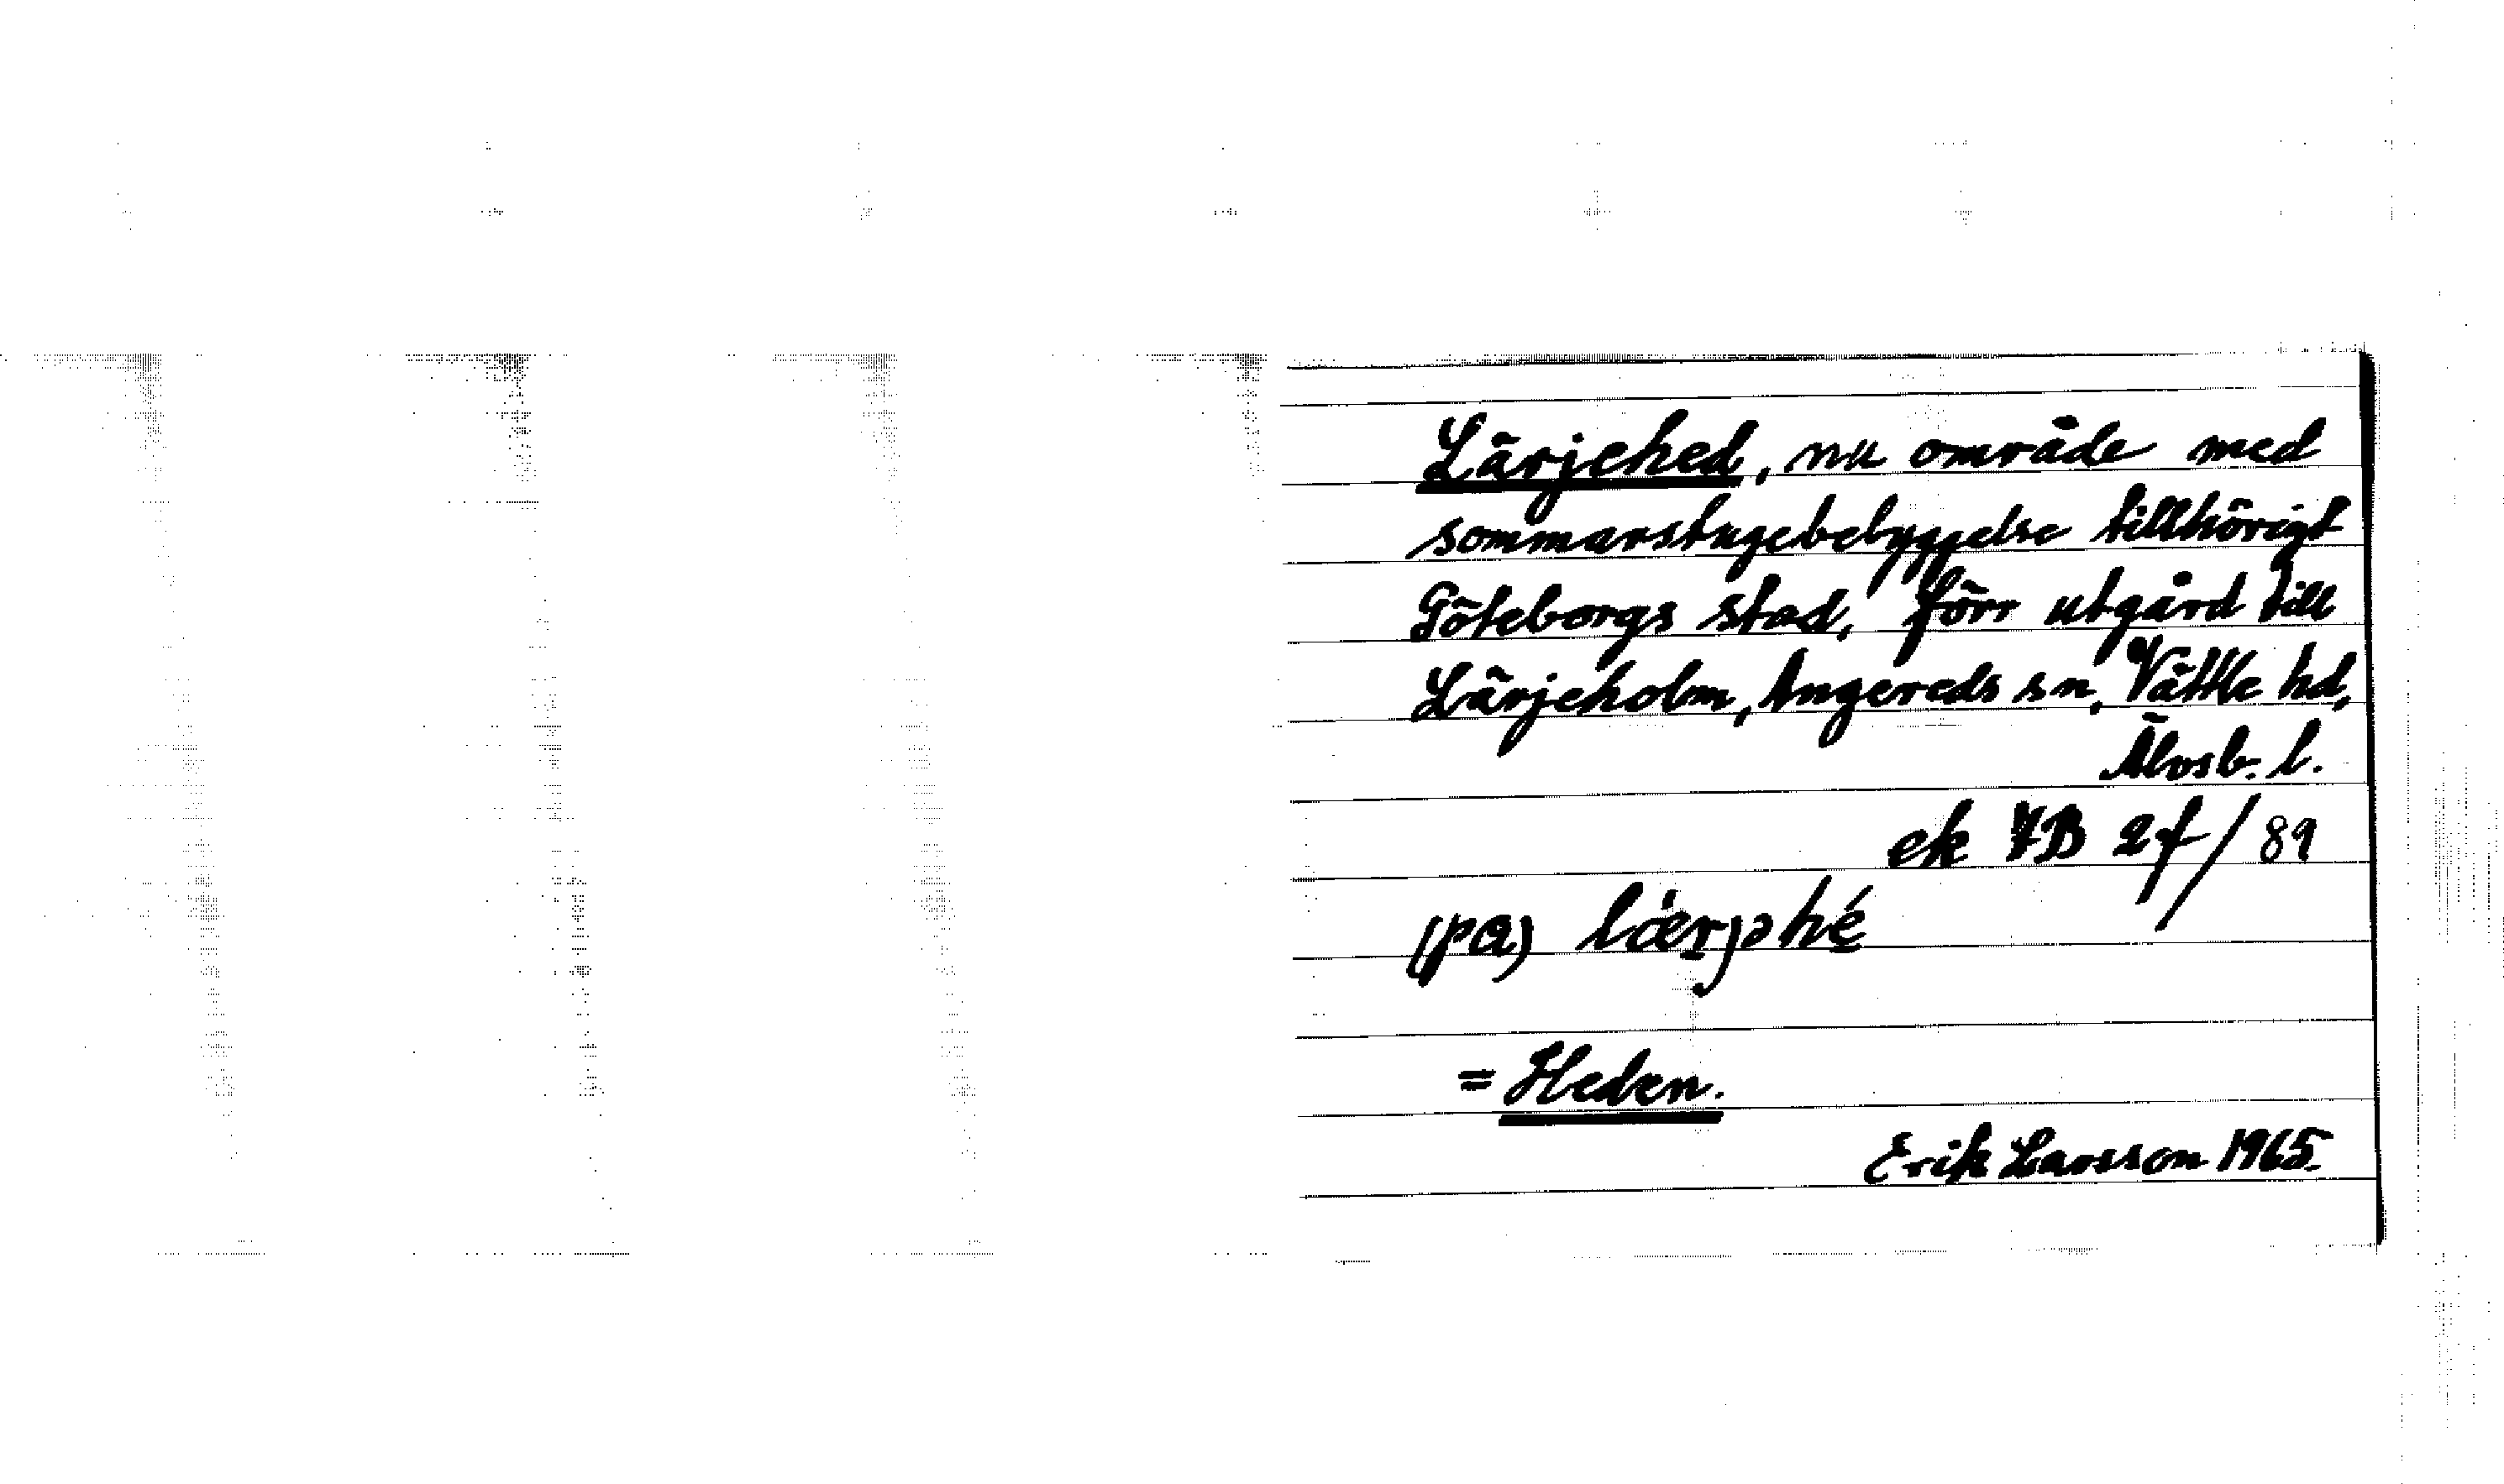 Lärjehed, nu område med
sommarstugebebyggelse tillhörigt
Göteborgs stad, förr utgård till
Lärjeholm, Angereds sn, Vättle hd,
Älvsb. l.
ek 7B 2f/89
(pa)
= Heden.
Erik Larsson 1965.